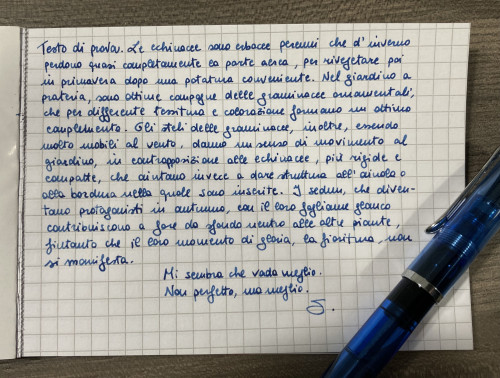 Testo di prova. Le echinacee sono erbacee perenni che d'inverno
perdono quasi completamente la parte aerea, per rivegetare poi
in primavera dopo una potatura conveniente. Nel giardino a
prateria, sono ottime compagne delle graminacee ornamentali,
che per differente tessitura e colorazione formano un ottimo
complemento. Gli steli delle graminacee, inoltre, essendo
molto mobili al vento, danno un senso di movimento al
giardino, in contrapposizione alle echinacee, più rigide e
compatte, che aiutano invece a dare struttura all'aiuola o
alla bordura nella quale sono inserite. I sedum, che diven-
tano protagonisti in autunno, con il loro fogliame glauco
contribuiscono a fare da sfondo neutro alle altre piante,
fintanto che il loro momento di gloria, la fioritura, non
si manifesta.
Mi sembra che vada meglio.
Non perfetto, ma meglio.